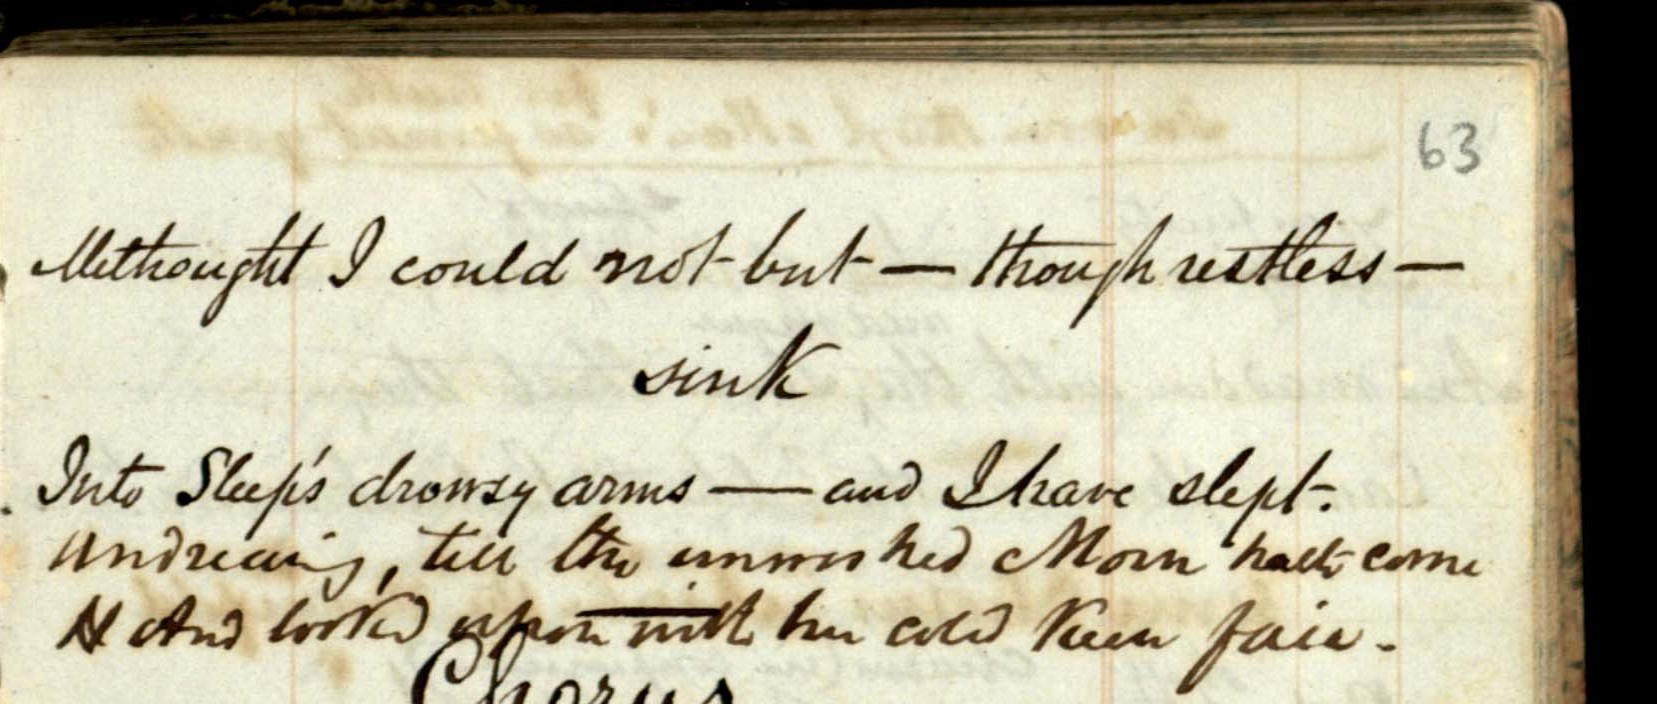 63
Methought I could not but — though restless —
sink
Into Sleep's drowsy arms — and I have slept.
till the unwished Morn hath come
And look'd upon with her cold Keen
Chorus